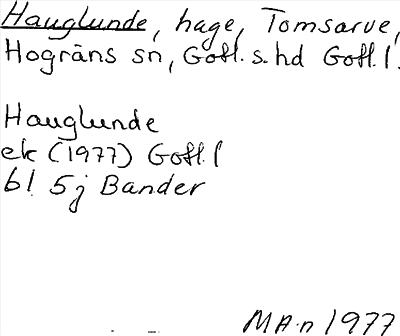 Hauglunde, hage, Tomsarve,
Hogräns sn, Gotl. s. hd Gotl. l.
Hauglunde
ek (1977) Gotl. l
bl. 5j Bander
MA-n 1977